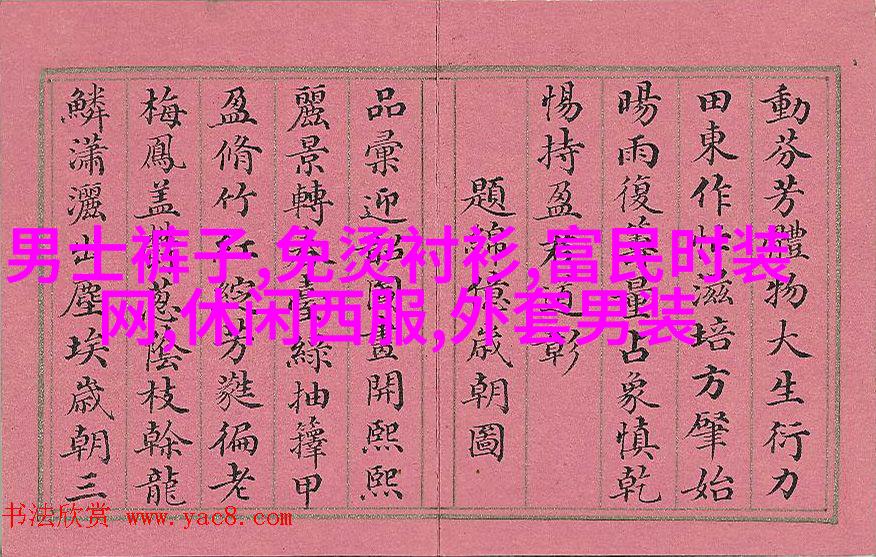 動芬芳體物大生衍力
田東作性滋培方肇始
暘雨復量占象慎乾
惕持盈道彰
題錦歲朝圖
品彙迎韶圖畫開熙熙
麗景轉春臺綠抽籜甲
盈脩竹紅綻芳蕤徧老
梅鳳蓋蔥蔭枝榦龍
鱗瀟灑出塵埃歲朝三
男士裤子,免烫衬衫,富民时装
网,休闲西服,外套男装
书法欣赏 www.yac8.com